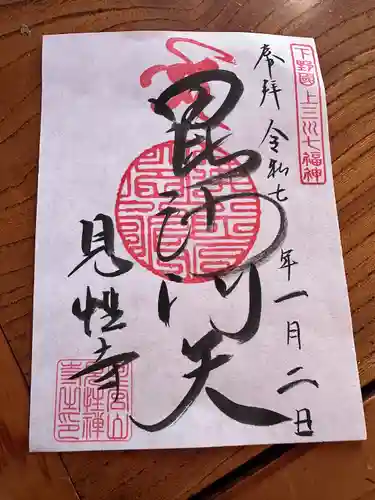 下野國上三川七福神
奉拝 令和七年一月二日
毘沙門天
見性寺